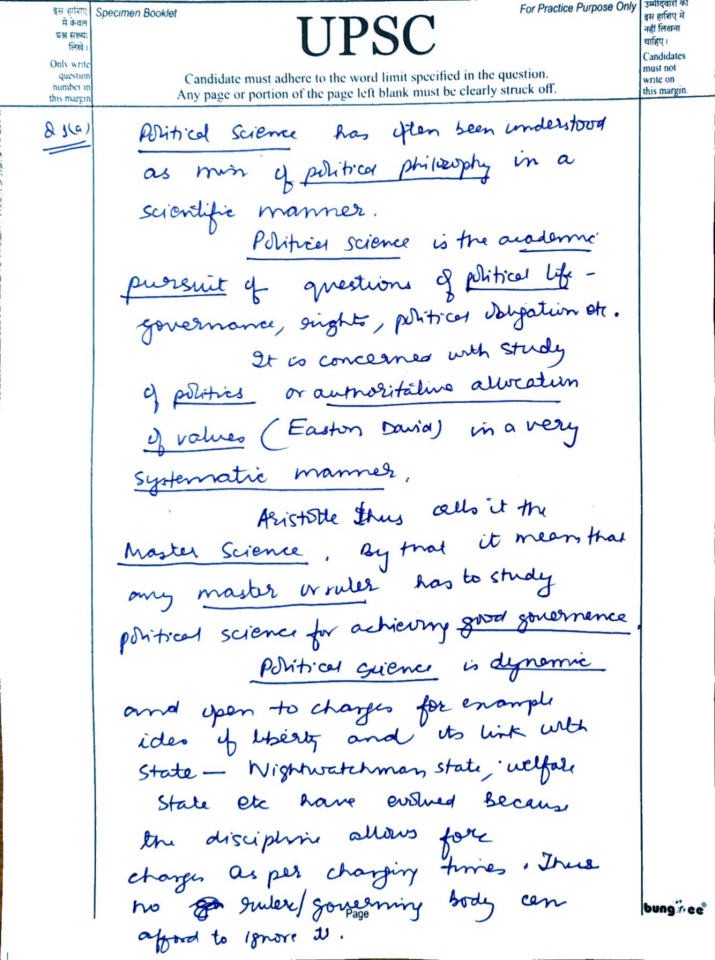 इस हाशिए
में केवल
प्रश्न संख्या
लिखें।
Only write
question
number in
this margin
Specimen Booklet
For Practice Purpose Only
UPSC
Candidate must adhere to the word limit specified in the question.
Any page or portion of the page left blank must be clearly struck off.
उम्मीदवारों को
इस हाशिए में
नहीं लिखना
चाहिए।
Candidates
must not
write on
this margin.
Political Science has often been understood
as of political philosophy in a
scientific manner.
Political science is the academic
pursuit of questions of political life -
governance, rights, political obligation etc.
It is concerned with study
of politics or authoritative allocation
of values (Easton David) in a very
systematic manner.
Aristotle thus calls it the
Master Science. By that it means that
any master or ruler has to study
political science for achieving good governence.
Political science is dynamic
and open to changes for example
ides of liberty and its link with
State — Nightwatchman state, welfare
State etc have evolved because
the discipline allows fore
changes as per changing times. Thus
no ruler/governing body can
afford to ignore it.
Page